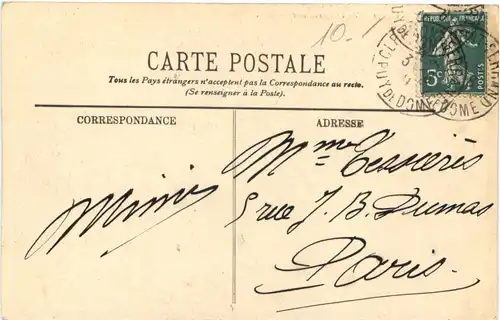 10-1
RÉPUBLIQUE FRANÇAISE
5c POSTES
PUY DE DOME
CARTE POSTALE
Tous les Pays étrangers n'acceptent pas la Correspondance au recto.
(Se renseigner à la Poste).
CORRESPONDANCE
ADRESSE
Mimi
Mme Tessières
5 rue J. B. Dumas
Paris